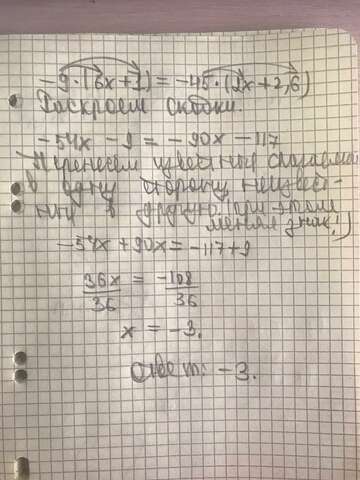 -9·(6x+1)=-45·(2x+2,6)
Раскроем скобки.
-54x - 9 = -90x - 117
Перенесём известные слагаемые
в одну сторону неизвест-
ные в другую(при этом
меняя знак!)
-54x + 90x = -117+9
36x = -108
36 36
x = -3.
Ответ: -3.